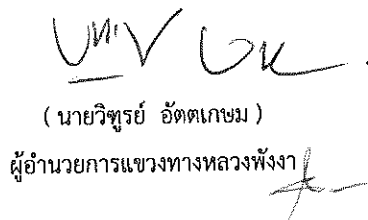 ( นายวิฑูรย์ อัตตเกษม )
ผู้อำนวยการแขวงทางหลวงพังงา